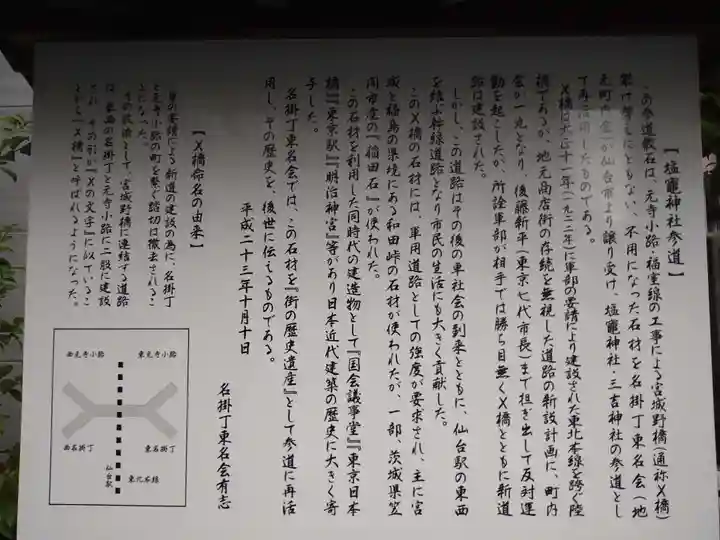 『塩竈神社参道』
この参道敷石は、元寺小路・福室線の工事による宮城野橋(通称X橋)
架け替えにともない、不用になった石材を名掛丁東名会(地
元町内会)が仙台市より譲り受け、塩竈神社・三吉神社の参道とし
て再活用したものである。
X橋は大正十一年(一九二二年)に軍部の要請により建設された東北本線を跨ぐ陸
橋であるが、地元商店街の存続を無視した道路の新設計画に、町内
会が一丸となり、後藤新平(東京七代市長)まで担ぎ出して反対運
動を起こしたが、所詮軍部が相手では勝ち目無くX橋とともに新道
路は建設された。
しかし、この道路はその後の車社会の到来とともに、仙台駅の東西
を結ぶ幹線道路となり市民の生活にも大きく貢献した。
このX橋の石材には、軍用道路としての強度が要求され、主に宮
城と福島の県境にある和田峠の石材が使われたが、一部、茨城県笠
間市産の『稲田石』が使われた。
この石材を利用した同時代の建造物として『国会議事堂』『東京日本
橋』『東京駅』『明治神宮』等があり日本近代建築の歴史に大きく寄
与した。
名掛丁東名会では、この石材を『街の歴史遺産』として参道に再活
用し、その歴史を、後世に伝えるものである。
平成二十三年十月十日
名掛丁東名会有志
【X橋命名の由来】
軍の要請による新道の建設の為に、名掛丁
と元寺小路の町を繋ぐ踏切は撤去されるこ
とになった。
その救済として、宮城野橋に連結する道路
は、東西の名掛丁と元寺小路に二股に建設
され、その形が『Xの文字』に似ているこ
とから『X橋』と呼ばれるようになった。
西元寺小路
東元寺小路
西名掛丁
東名掛丁
仙台駅
東北本線